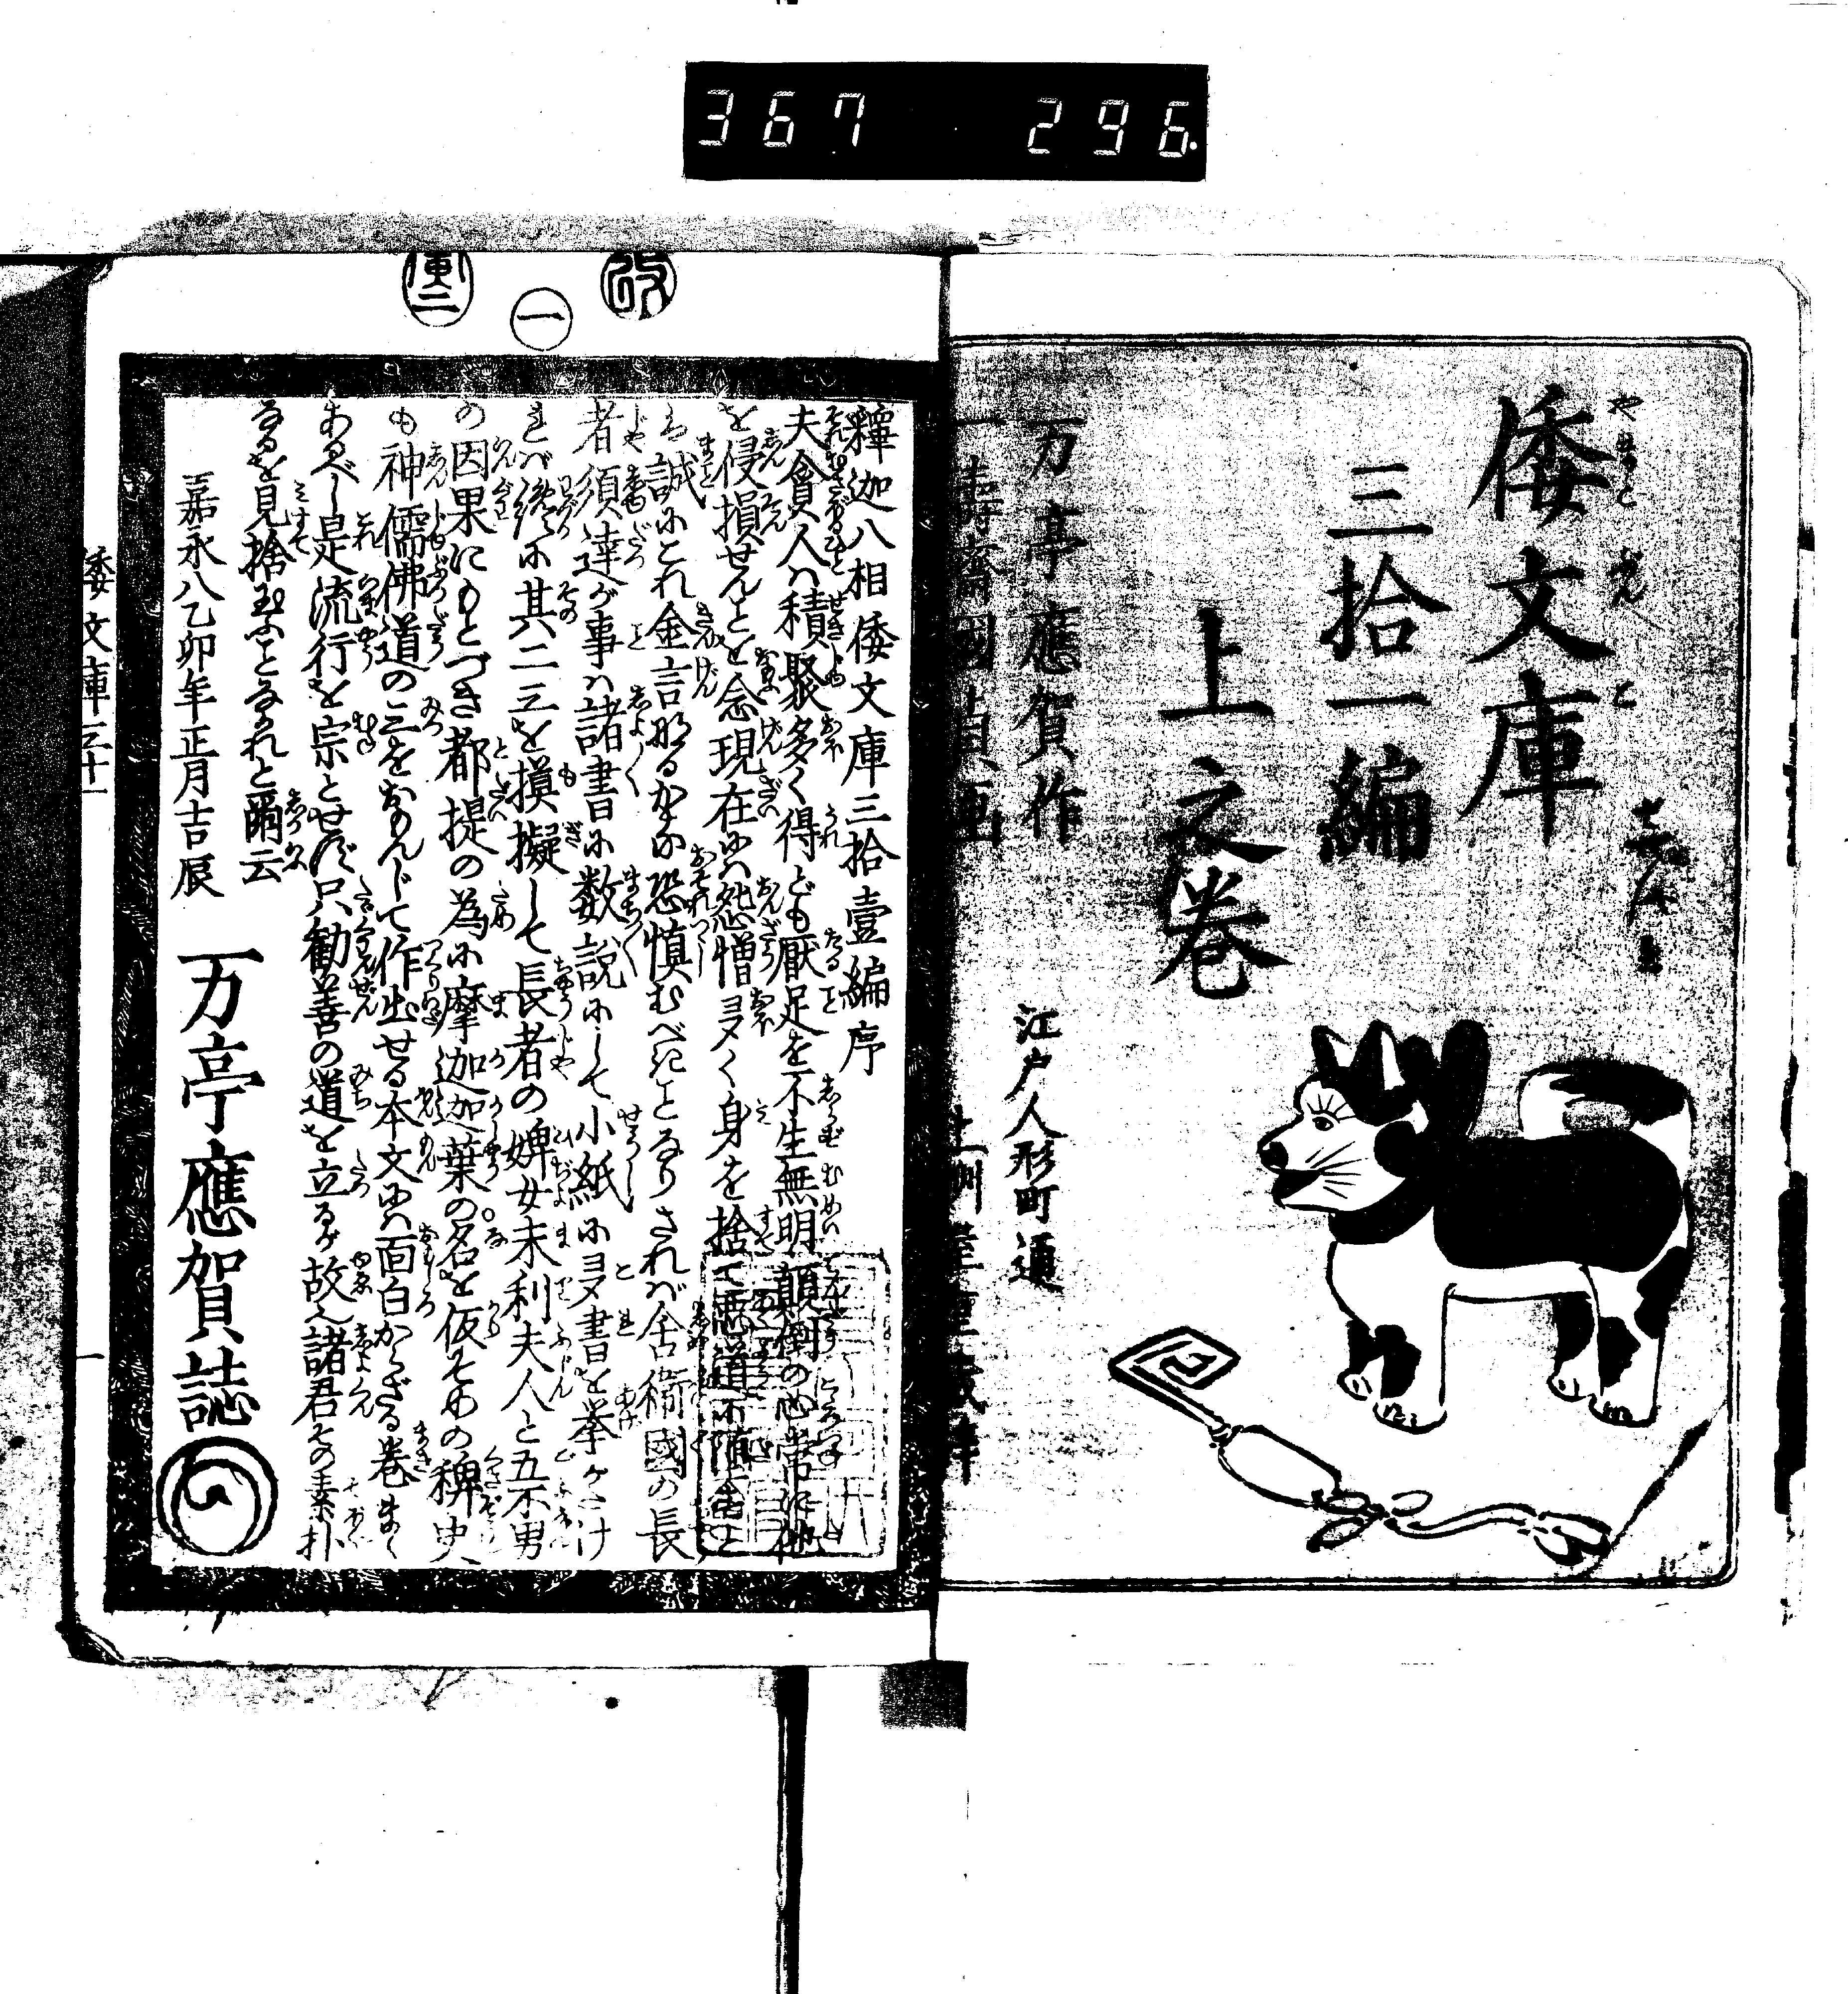 367 296
倭文庫
やまとぶんこ
三拾一編
上之巻
万亭應賀作
一壽齋國貞画
江戸人形町通
上州屋重蔵梓
改
一
釋迦八相倭文庫三拾壹編序
夫貪人ハ積聚多く得ども厭足を不生無明顛倒の心常に他
を侵損せんとを念現在にハ怨憎多く身を捨て悪道に堕會と
誠にこれ金言なるかな恐慎むべきことなりされバ舎衛國の長
者須達が事ハ諸書に数説にして小紙に多書を挙がたけ
れバ纔に其二三を摸擬して長者の婢女末利夫人と五不男
の因果にもとづき都提の為に摩迦迦葉の名を仮そめの稗史
も神儒佛道の三をおもんじて作出せる本文にハ面白からざる巻まく
あるべし是流行を宗とせず只勧善の道を立るが故に諸君その素朴
なるを見捨玉ふことなかれと爾云
嘉永八乙卯年正月吉辰
万亭應賀誌
倭文庫三十一
一